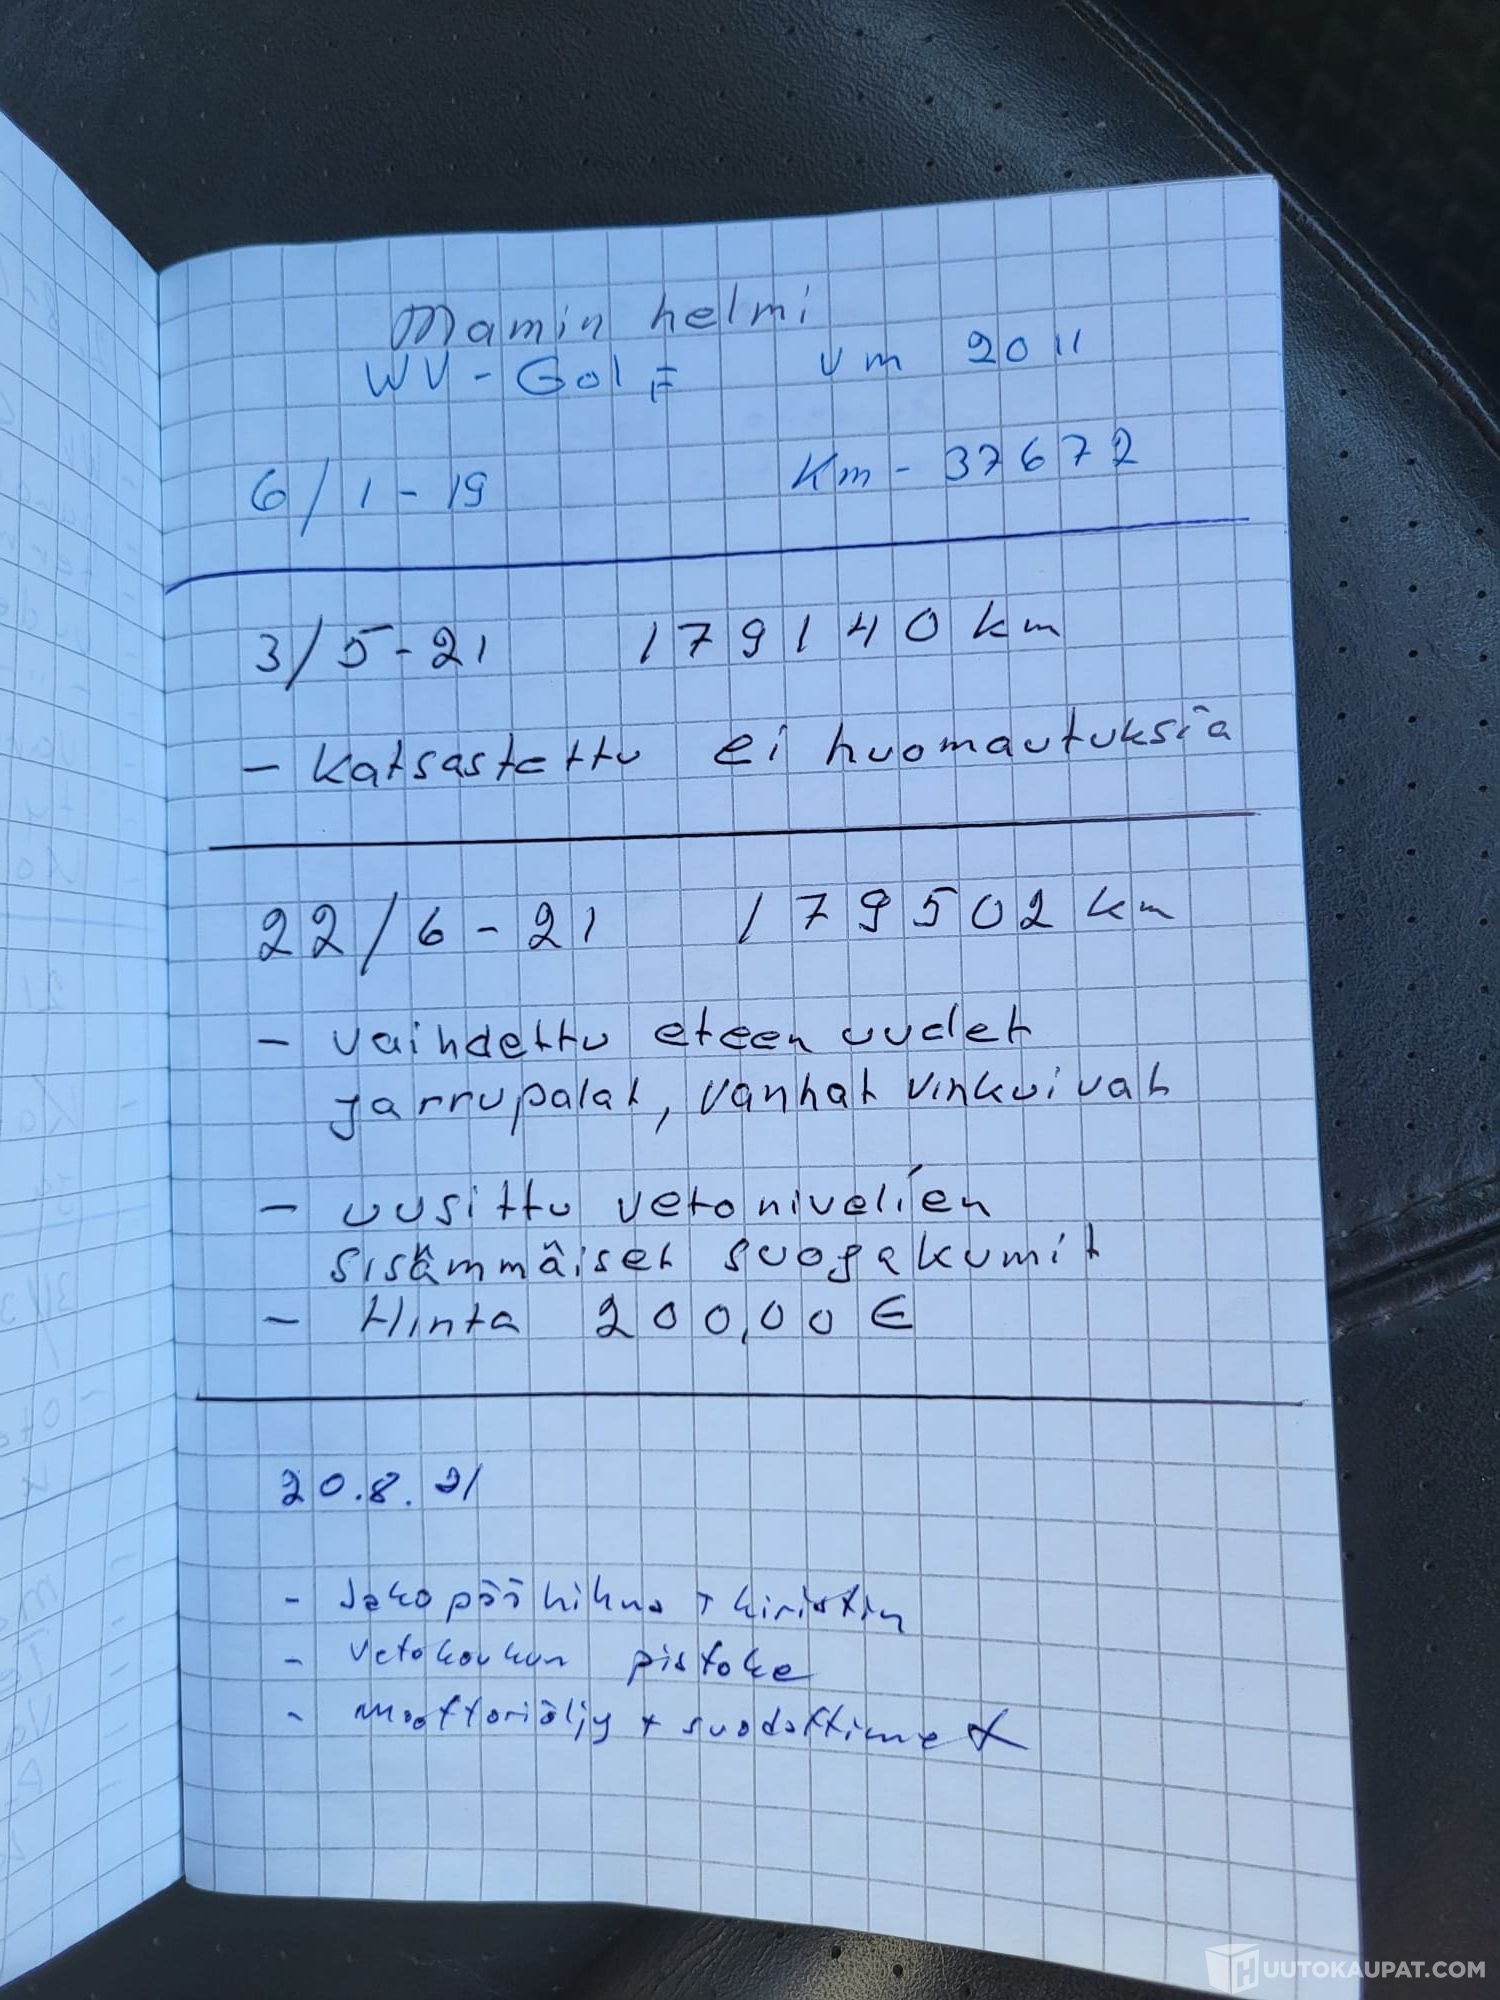 Mamin helmi
WV-Golf vm 2011
6/1-19 Km-37672
3/5-21 179140 km
- Katsastettu ei huomautuksia
22/6-21 179502 km
- vaihdettu eteen uudet
jarrupalat, vanhat vinkuivat
- uusittu vetonivelien
sisämmäiset suojakumit
- Hinta 200,00 €
20.8.21
- Jakopäähihna + kiristin
- vetokoukun pistoke
- moottoriöljy + suodattimet
HUUTOKAUPAT.COM